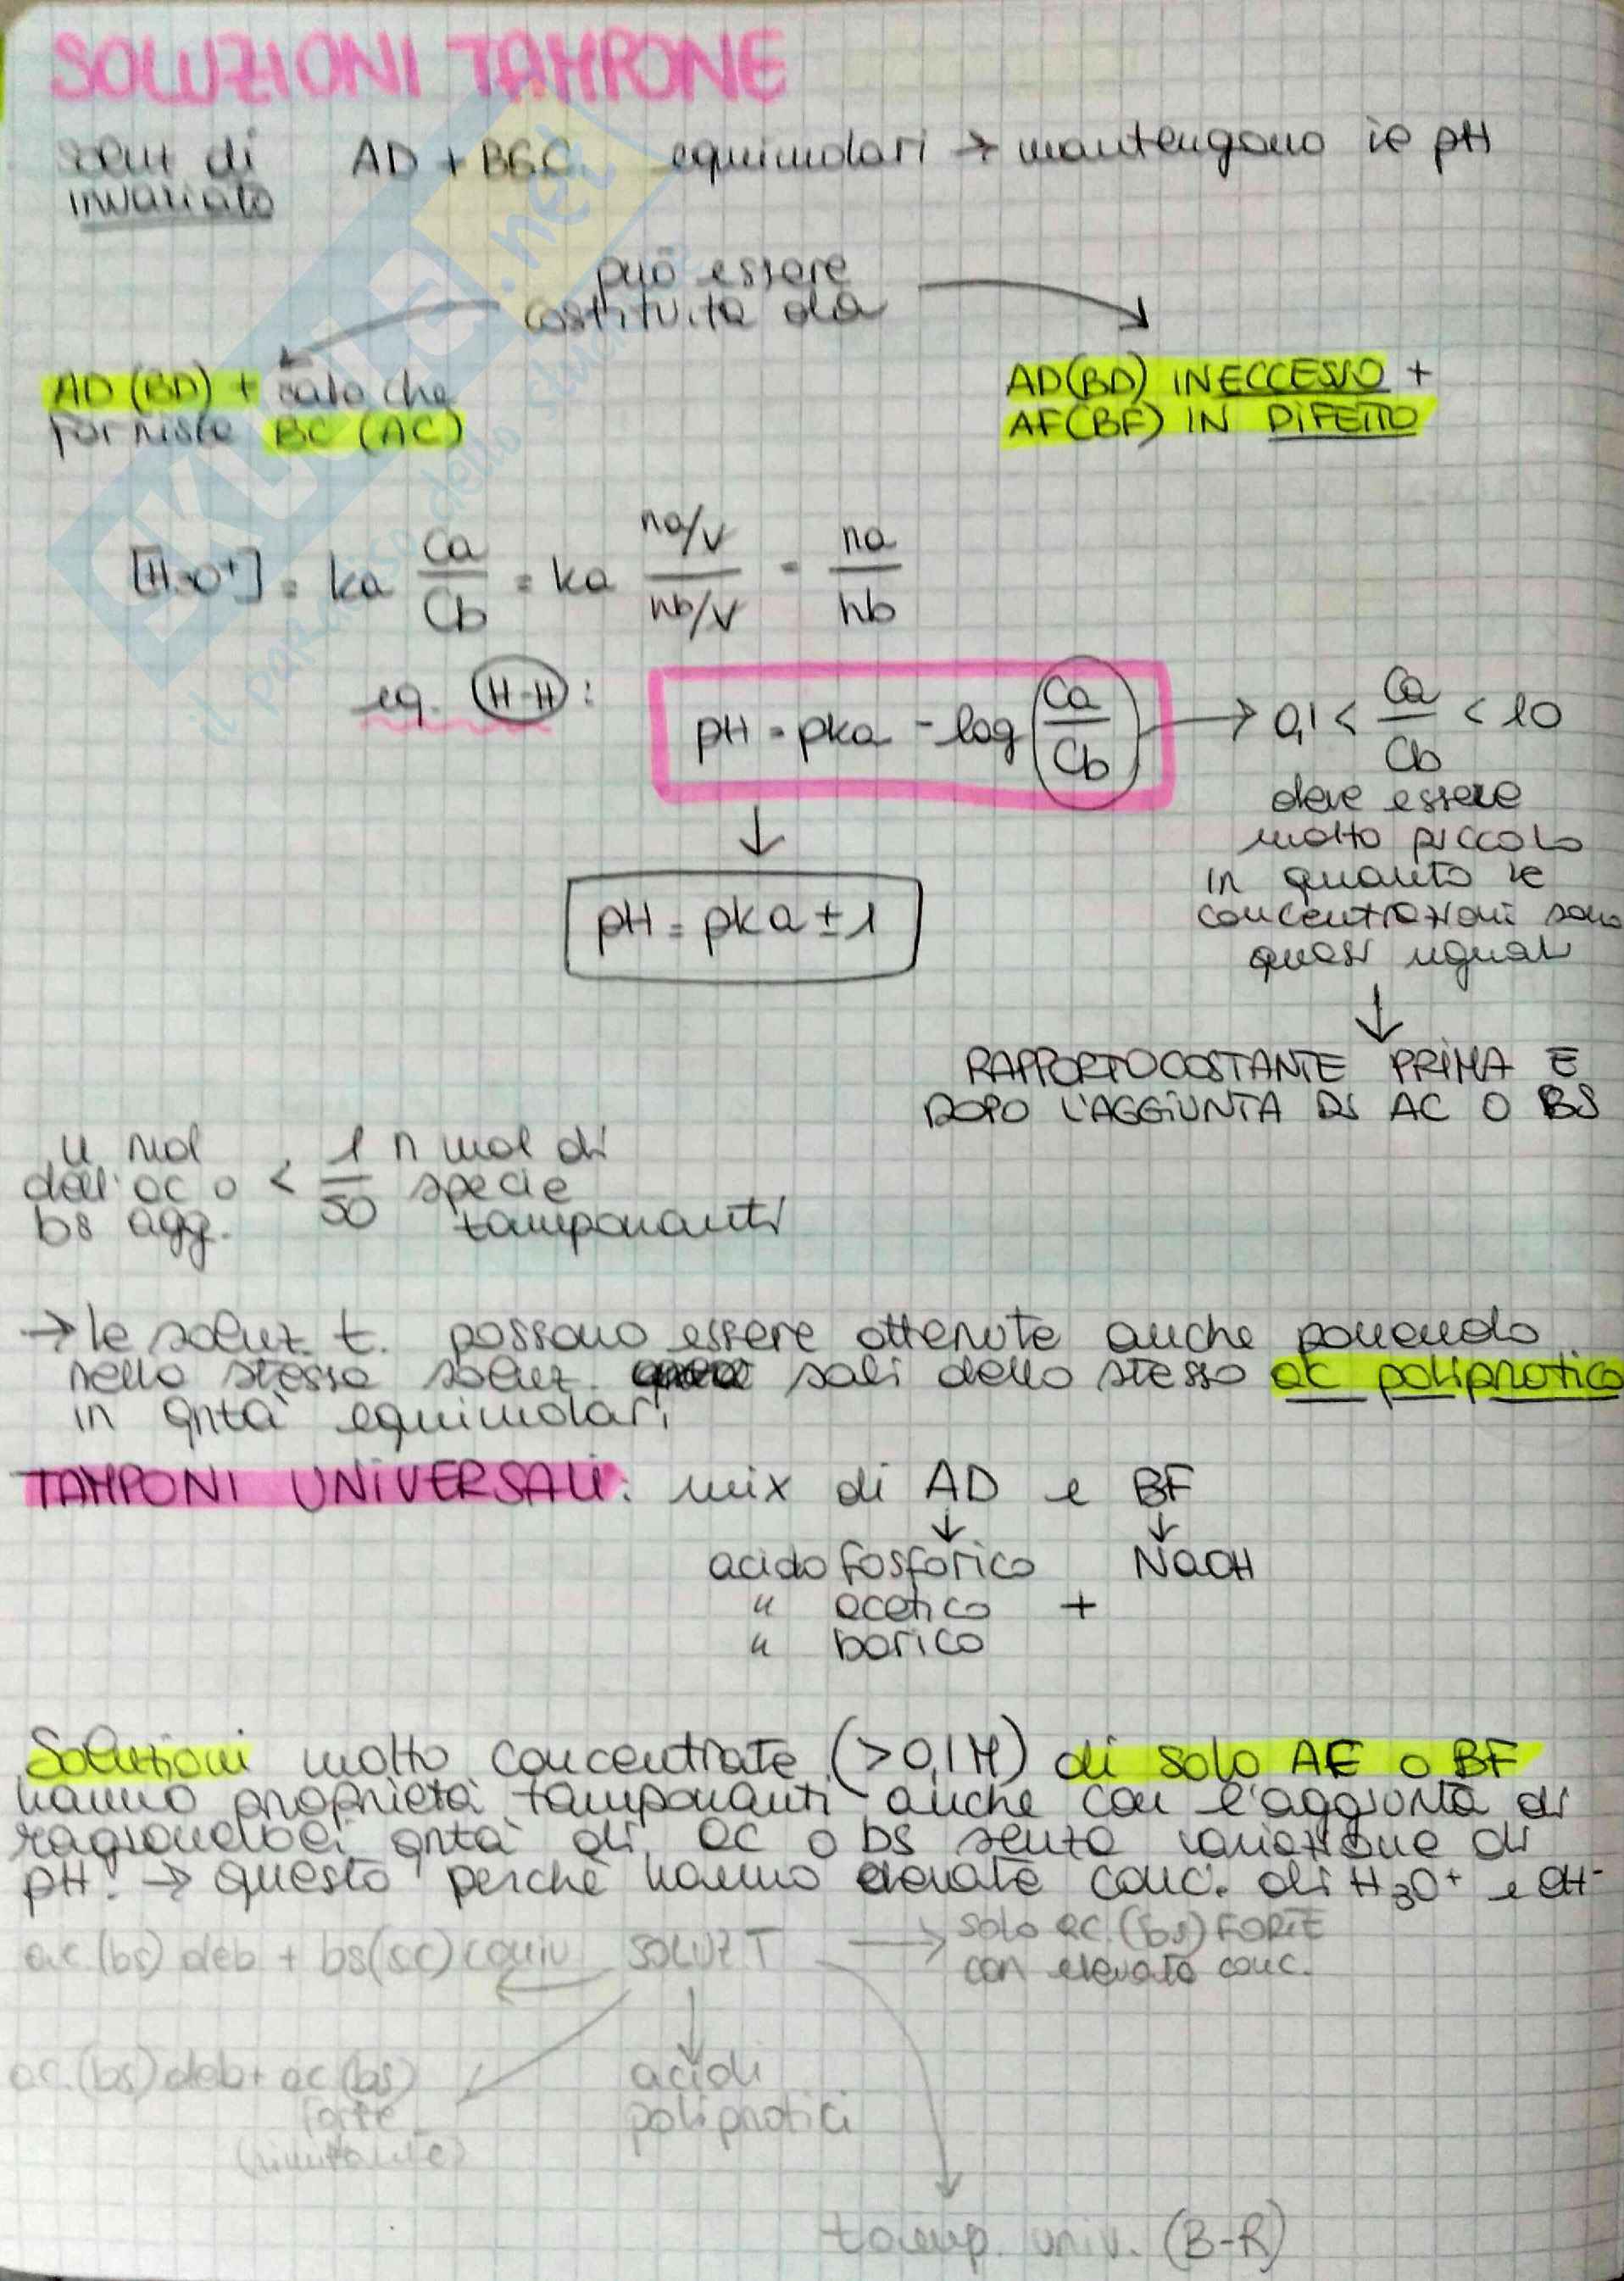 SOLUZIONI TAMPONE
soluz di AD + B.C. equimolari → mantengono il pH
invariato
può essere
costituita da
AD (BD) + sale che
fornisce BC (AC)
AD(BD) IN ECCESSO +
AF(BF) IN DIFETTO
[H3O+] = ka Ca/Cb = ka (na/V)/(nb/V) = na/nb
eq. H-H :
pH = pka - log Ca/Cb → 0,1 < Ca/Cb < 10
deve essere
molto piccolo
in quanto le
concentrazioni sono
quasi uguali
↓
pH = pka ± 1
↓
RAPPORTO COSTANTE PRIMA E
DOPO L'AGGIUNTA DI AC O BS
n mol
dell'ac o
bs agg.
< 1/50
n mol di
specie
tamponanti
→ le soluz. t. possono essere ottenute anche ponendo
nella stessa soluz. sali dello stesso ac poliprotico
in qntà equimolari
TAMPONI UNIVERSALI: mix di AD e BF
↓ ↓
acido fosforico NaOH
" acetico +
" borico
Soluzioni molto concentrate (>0,1M) di solo AF o BF
hanno proprietà tamponanti anche con l'aggiunta di
ragionevoli qntà di ac o bs senza variazione di
pH! → questo perchè hanno elevate conc. di H3O+ e OH-
ac.(bs) deb + bs(ac) coniu SOLUZ T → solo ac.(bs) FORTE
con elevata conc.
ac.(bs) deb + ac (bs)
forte
acidi
poliprotici
tamp. univ. (B-R)
SKUOLA.net
il paradiso dello studente